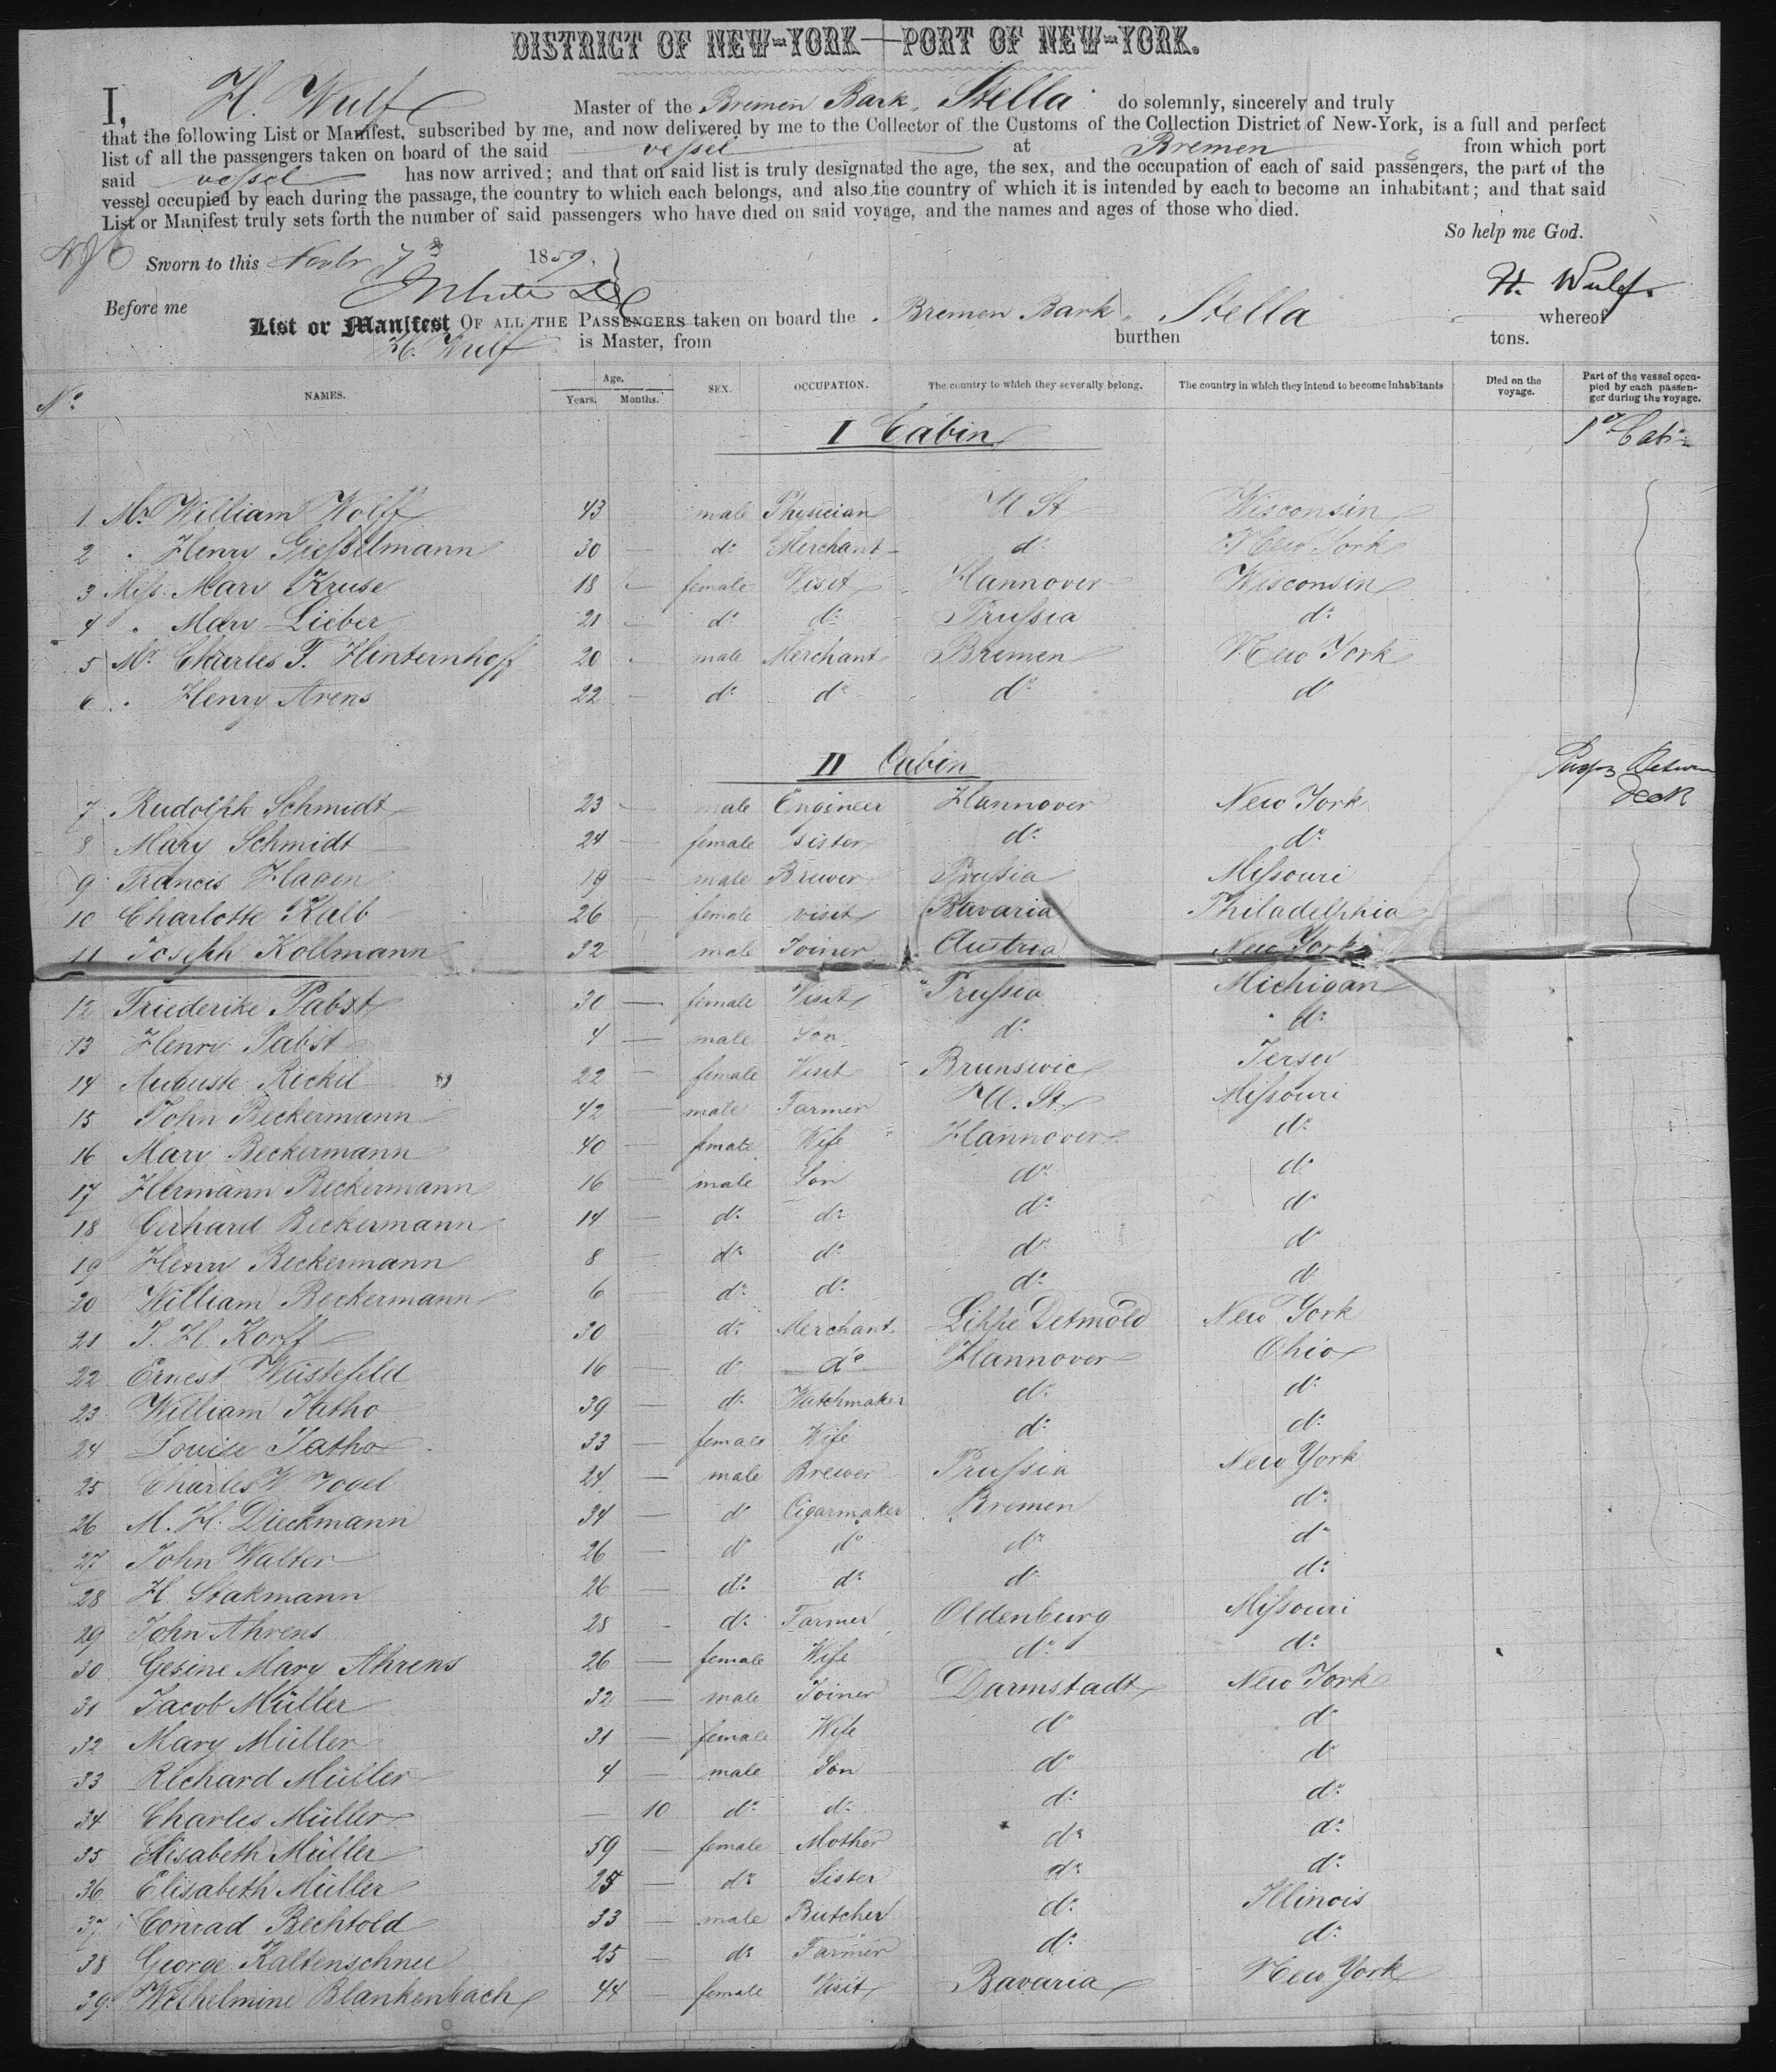 DISTRICT OF NEW-YORK—PORT OF NEW-YORK.
I, H. Wulf Master of the Bremen Bark Stella do solemnly, sincerely and truly
that the following List or Manifest, subscribed by me, and now delivered by me to the Collector of the Customs of the Collection District of New-York, is a full and perfect
list of all the passengers taken on board of the said vessel at Bremen from which port
said vessel has now arrived; and that on said list is truly designated the age, the sex, and the occupation of each of said passengers, the part of the
vessel occupied by each during the passage, the country to which each belongs, and also the country of which it is intended by each to become an inhabitant; and that said
List or Manifest truly sets forth the number of said passengers who have died on said voyage, and the names and ages of those who died.
So help me God.
Sworn to this Novbr 7th 1859.
H. Wulf.
Before me
List or Manifest OF ALL THE PASSENGERS taken on board the Bremen Bark Stella whereof
H. Wulf is Master, from burthen tons.
No. NAMES. Age. Years. Months. SEX. OCCUPATION. The country to which they severally belong. The country in which they intend to become inhabitants Died on the voyage. Part of the vessel occupied by each passenger during the voyage.
I Cabin 1st Cabin
1 Mr. William Wolff 43 — male Phisician U. St Wisconsin
2 " Henry Giesselmann 30 — do Merchant do New York
3 Miss Mary Kruse 18 — female Visit Hannover Wisconsin
4 " Mary Lieber 21 — do do Prussia do
5 Mr. Charles F. Hinternhoff 20 male Merchant Bremen New York
6 " Henry Arens 22 — do do do do
II Cabin Between Deck
7 Rudolph Schmidt 23 — male Engineer Hannover New York
8 Mary Schmidt 24 — female sister do do
9 Francis Hagen 19 — male Brewer Prussia Missouri
10 Charlotte Kalb 26 female visit Bavaria Philadelphia
11 Joseph Kollmann 32 male Joiner Austria New York
12 Friederike Pabst 30 — female Visit Prussia Michigan
13 Henry Pabst 4 — male Son do do
14 Auguste Reckel 22 — female Visit Brunswic Jersey
15 John Beckermann 42 — male Farmer U. St. Missouri
16 Mary Beckermann 40 — female Wife Hannover do
17 Hermann Beckermann 16 — male Son do do
18 Gerhard Beckermann 14 — do do do do
19 Henry Beckermann 8 — do do do do
20 William Beckermann 6 — do do do do
21 J. H. Korff 30 — do Merchant Lippe Detmold New York
22 Ernest Wüstefeld 16 — do do Hannover Ohio
23 William Tatho 39 — do Watchmaker do do
24 Louise Tatho 33 — female Wife do do
25 Charles W. Vogel 24 — male Brewer Prussia New York
26 M. H. Dieckmann 34 — do Cigarmaker Bremen do
27 John Walter 26 — do do do do
28 H. Stakmann 26 — do do do do
29 John Ahrens 28 - do Farmer Oldenburg Missouri
30 Gesine Mary Ahrens 26 — female Wife do do
31 Jacob Müller 32 — male Joiner Darmstadt New York
32 Mary Müller 31 — female Wife do do
33 Richard Müller 4 — male Son do do
34 Charles Müller — 10 do do do do
35 Elisabeth Müller 59 — female Mother do do
36 Elisabeth Müller 25 — do Sister do do
37 Conrad Bechtold 33 — male Butcher do Illinois
38 George Kaltenschnee 25 — do Farmer do do
39 Wilhelmine Blankenbach 44 — female Visit Bavaria New York